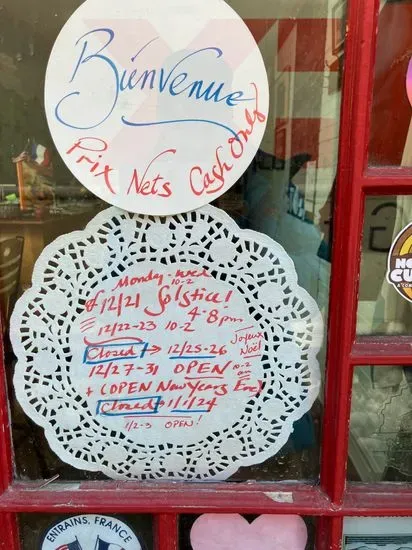 Bienvenue
Prix Nets Cash Only
Monday - Wed
10-2
& 12/21 Solstice!
4-8pm
12/22-23 10-2
Closed → 12/25-26
Joyeux
Noël
12/27-31 OPEN 10-2
+ (OPEN New Years Eve)
Closed → 1/1/24
1/2-3 OPEN!
ENTRAINS, FRANCE
NO
CU
G